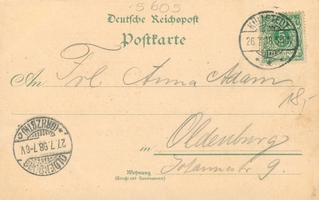 5605
Deutsche Reichspost
Postkarte
An Frl. Anna Adam
18,-
in Oldenburg
Johannesstr 9.
Wohnung
(Straße und Hausnummer)
OLDENBURG
27.7.98.7-8V
(GRHZGTH)
26.7.98